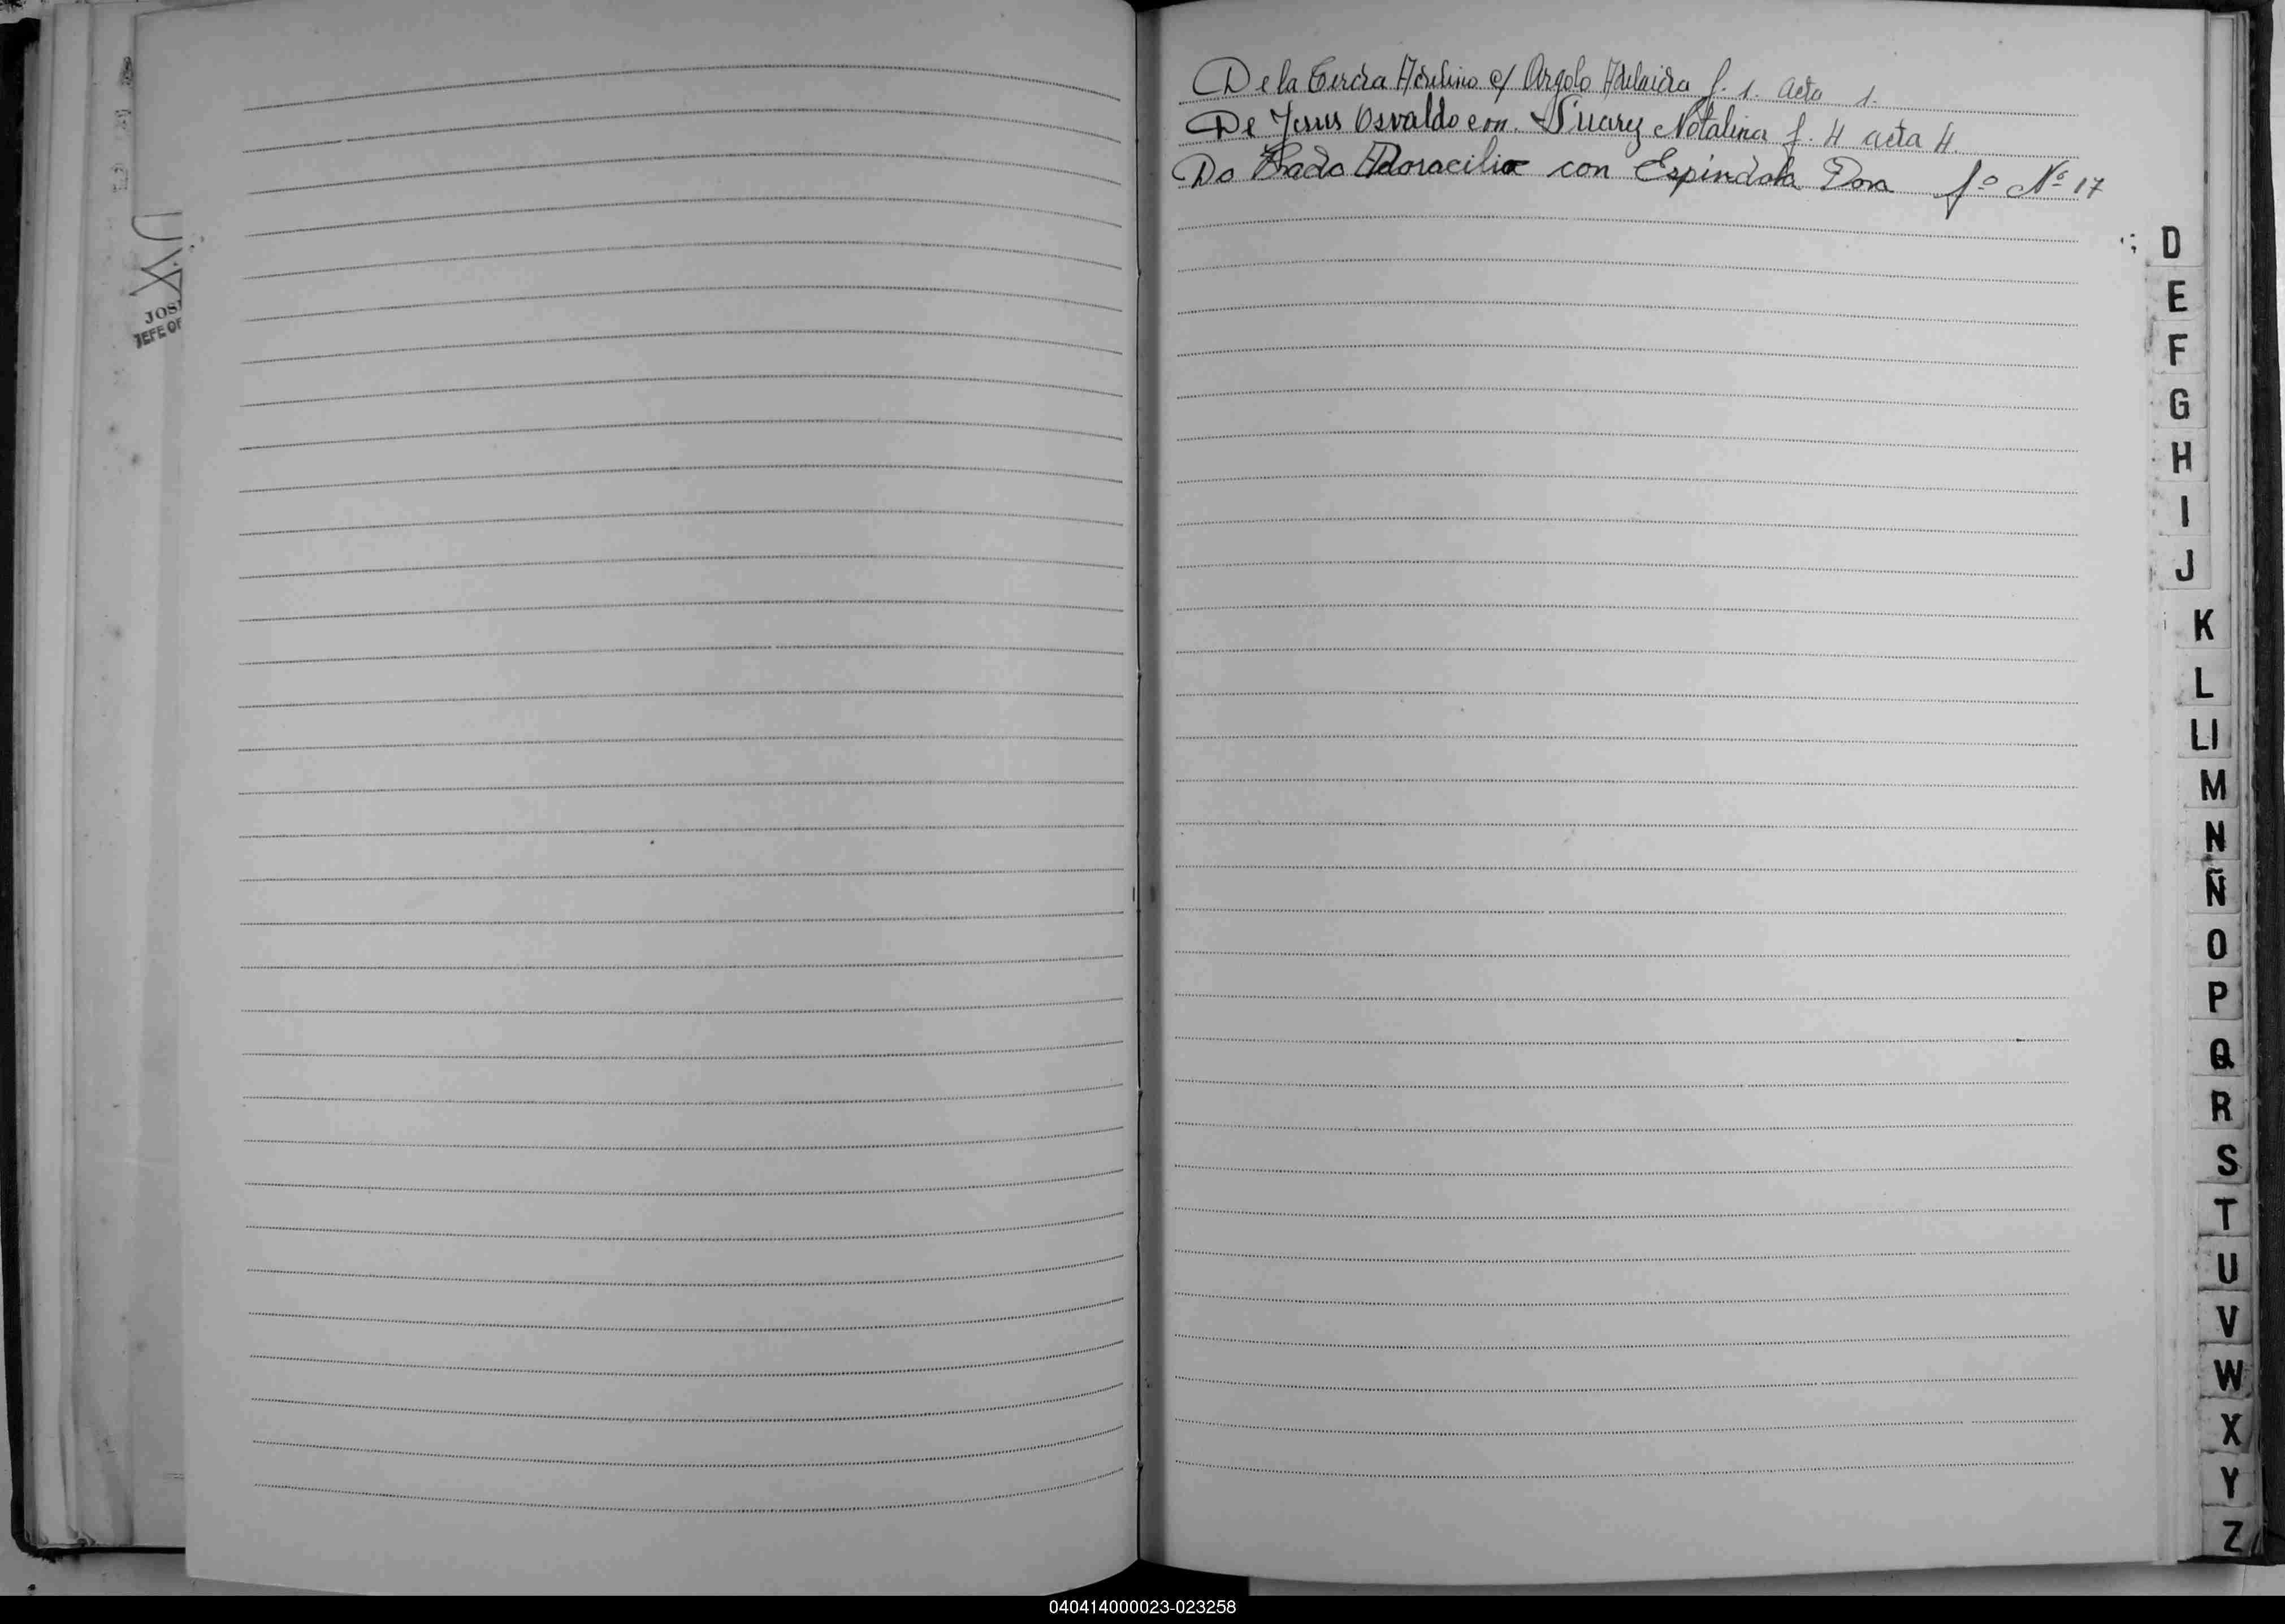 De la Cerda Adelino c/ Argolo Adelaida f. 1. acta 1.
De Jesus Osvaldo con. Suarez Natalina f. 4 acta 4.
Do Prado Adoracilio con Espindola Dora fº Nº 17
JOS
JEFE OF
D
E
F
G
H
I
J
K
L
Ll
M
N
Ñ
O
P
Q
R
S
T
U
V
W
X
Y
Z
040414000023-023258